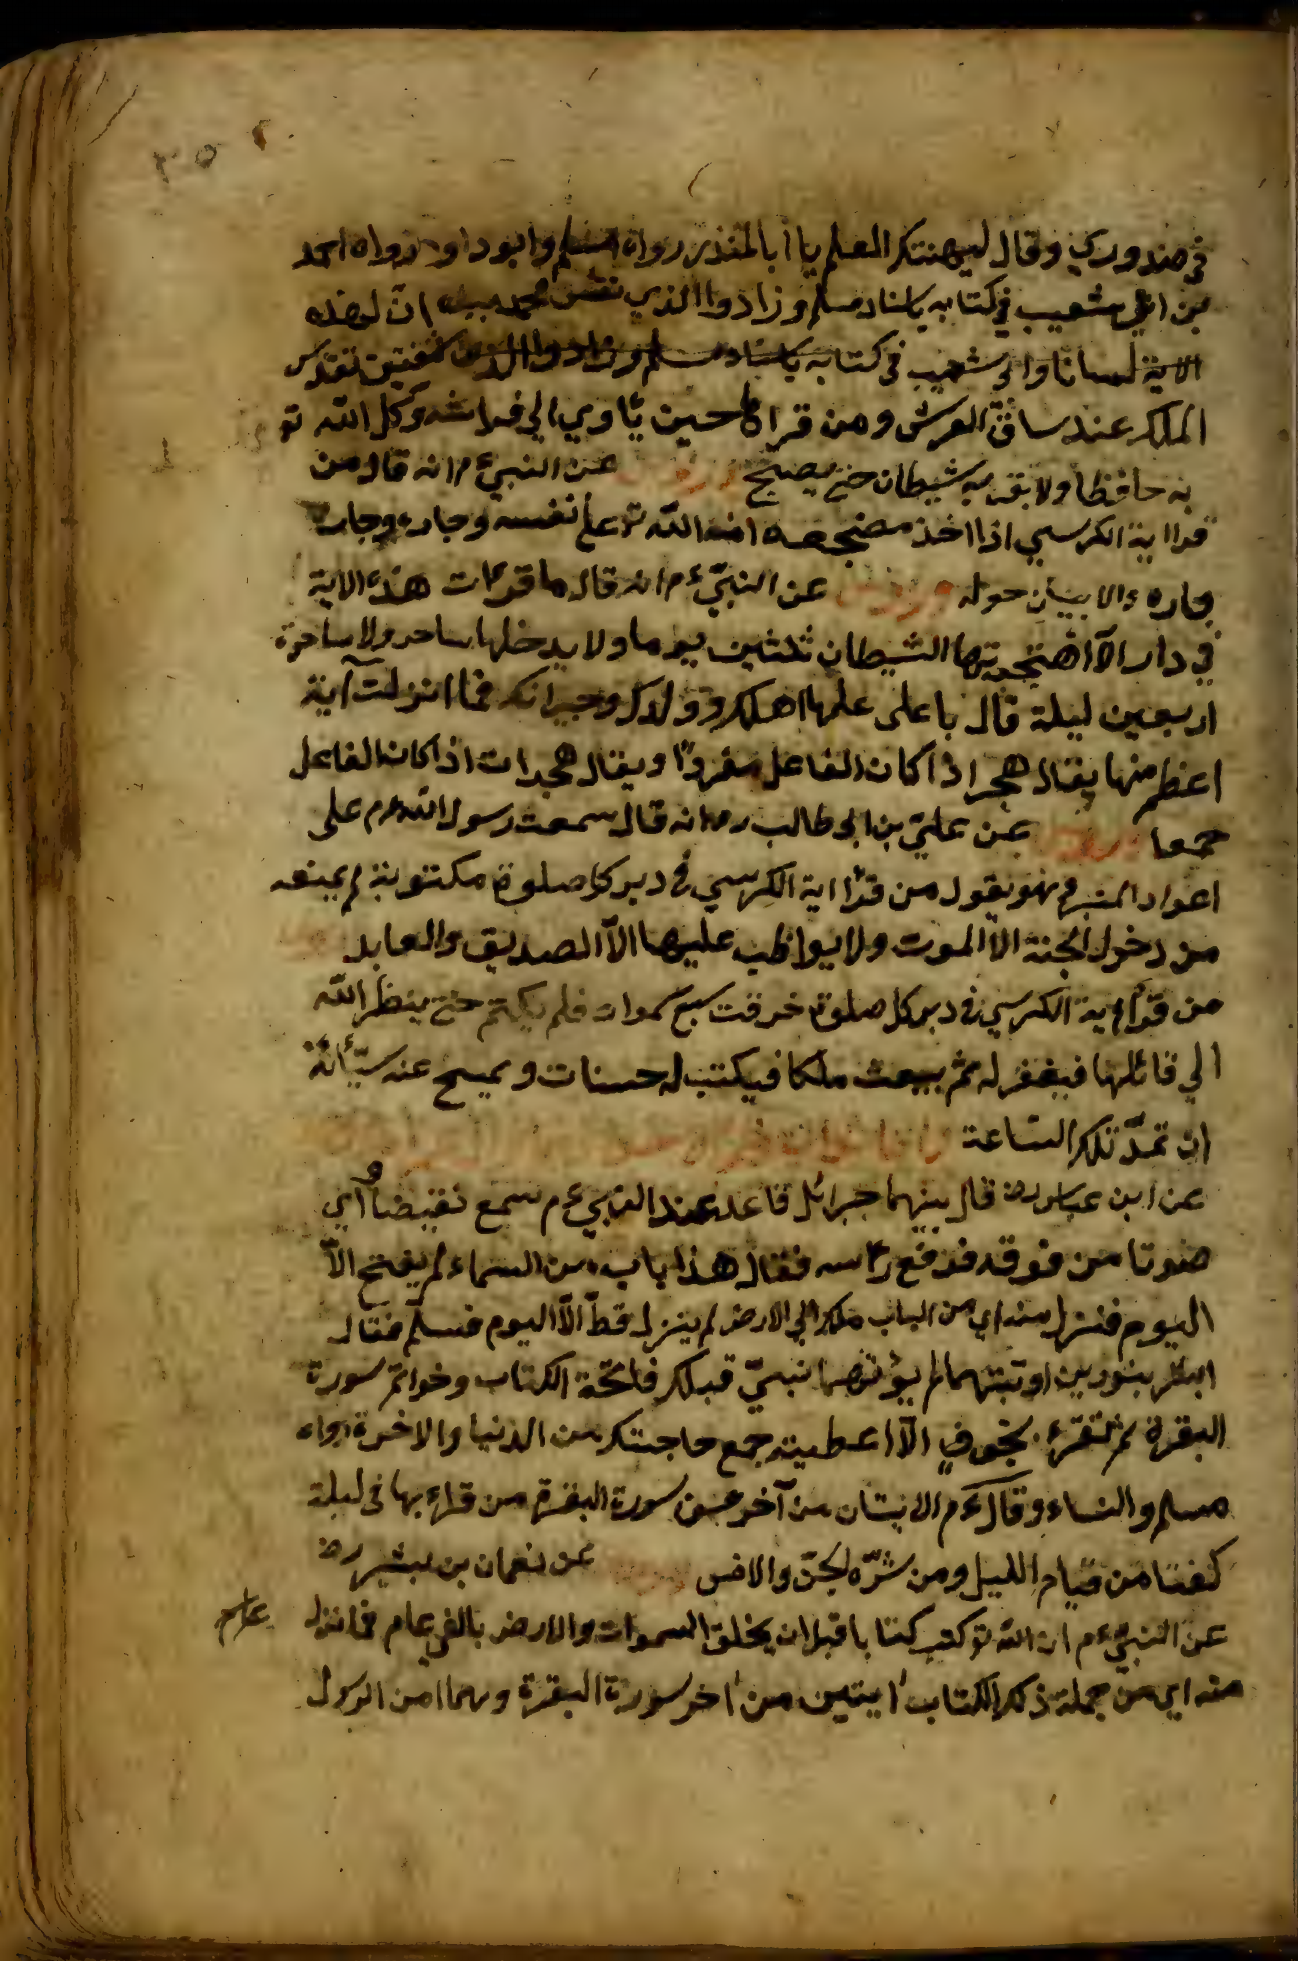 في صدوري وقال ليهنتك العلم يا ابا المنذر رواه مسلم وابو داود ورواه احمد
بن ابي شعيب في كتابه باسناد مسلم وزادوا الذي نفس محمد بيده ان لهذه
الاية لسانا وشفتين تقدس
الملك عند ساق العرش ومن قراها حين ياوي الي فراشه وكل الله تع
به حافظا ولا يقربه شيطان حتى يصبح عن النبيءم انه قال من
قرا اية الكرسي اذا اخذ مضجعه امنه الله تع على نفسه وجاره وجار
جاره والابيات حوله وروي عن النبيءم انه قال ما قرئت هذه الاية
في دار الا اهتجرتها الشيطان ثلثين يوما ولا يدخلها ساحر ولا ساحرة
اربعين ليلة قال يا على علمها اهلك وولدك وجيرانك فما انزلت آية
اعظم منها يقال هجر اذا كان الفاعل مفردا ويقال هجرات اذا كان الفاعل
جمعا عن علي بن ابي طالب رض انه قال سمعت رسول اللهءم على
اعواد المنبر وهو يقول من قرا اية الكرسي في دبر كل صلوة مكتوبة لم يمنعه
من دخول الجنة الا الموت ولا يواظب عليها الا الصديق والعابد
من قرا اية الكرسي في دبر كل صلوة خرقت سبع سموات فلم يلتئم حتى ينظر الله
الي قائلها فيغفر له ثم يبعث ملكا فيكتب له حسنات ويمسح عنه سيأته
ان تمد تلك الساعة
عن ابن عباس رض قال بينهما جبرائل قاعد عند النبيءم سمع نقيضا اي
صوتا من فوقه فرفع راسه فقال هذا باب من السماء لم يفتح الا
اليوم فنزل منه اي من الباب ملك الي الارض لم ينزل قط الا اليوم فسلم فقال
ابشر بنورين اوتيتهما لم يؤتهما نبي قبلك فاتحة الكتاب وخواتم سورة
البقرة لم تقرء بحرف الا اعطيته جمع حاجتك من الدنيا والاخرة رواه
مسلم والنساء وقالءم الايتان من آخر سورة البقرة من قراء بها في ليلة
كفتا من قيام الليل ومن شره الجن والانس عن نعمان بن بشير رض
عن النبيءم ان الله تع كتب كتابا قبل ان يخلق السموات والارض بالفي عام فانزل
منه اي من جملة ذلك الكتاب ايتين من اخر سورة البقرة وهما امن الرسول